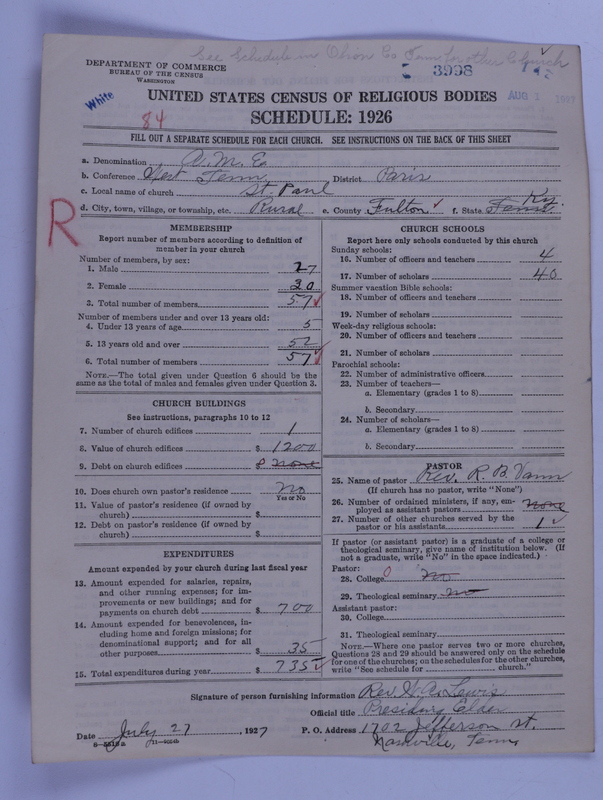 See Schedule in Obion Co Tenn for other Church
DEPARTMENT OF COMMERCE
BUREAU OF THE CENSUS
WASHINGTON
3998
White
AUG 1 1927
UNITED STATES CENSUS OF RELIGIOUS BODIES
SCHEDULE: 1926
84
FILL OUT A SEPARATE SCHEDULE FOR EACH CHURCH. SEE INSTRUCTIONS ON THE BACK OF THIS SHEET
a. Denomination A. M. E.
b. Conference West Tenn District Paris
c. Local name of church St. Paul
d. City, town, village, or township, etc. Rural e. County Fulton f. State Tenn. Ky.
R
MEMBERSHIP
Report number of members according to definition of
member in your church
Number of members, by sex:
1. Male 27
2. Female 30
3. Total number of members 57
Number of members under and over 13 years old:
4. Under 13 years of age 5
5. 13 years old and over 52
6. Total number of members 57
NOTE.—The total given under Question 6 should be the
same as the total of males and females given under Question 3.
CHURCH BUILDINGS
See instructions, paragraphs 10 to 12
7. Number of church edifices 1
8. Value of church edifices $ 1200
9. Debt on church edifices none
10. Does church own pastor's residence No
Yes or No
11. Value of pastor's residence (if owned by
church) $
12. Debt on pastor's residence (if owned by
church) $
EXPENDITURES
Amount expended by your church during last fiscal year
13. Amount expended for salaries, repairs,
and other running expenses; for im-
provements or new buildings; and for
payments on church debt $ 700
14. Amount expended for benevolences, in-
cluding home and foreign missions; for
denominational support; and for all
other purposes $ 35
15. Total expenditures during year $ 735
CHURCH SCHOOLS
Report here only schools conducted by this church
Sunday schools:
16. Number of officers and teachers 4
17. Number of scholars 40
Summer vacation Bible schools:
18. Number of officers and teachers
19. Number of scholars
Week-day religious schools:
20. Number of officers and teachers
21. Number of scholars
Parochial schools:
22. Number of administrative officers
23. Number of teachers—
a. Elementary (grades 1 to 8)
b. Secondary
24. Number of scholars—
a. Elementary (grades 1 to 8)
b. Secondary
PASTOR
25. Name of pastor Rev. R. B. Vann
(If church has no pastor, write "None")
26. Number of ordained ministers, if any, em-
ployed as assistant pastors none
27. Number of other churches served by the
pastor or his assistants 1
If pastor (or assistant pastor) is a graduate of a college or
theological seminary, give name of institution below. (If
not a graduate, write "No" in the space indicated.)
Pastor:
28. College no
29. Theological seminary no
Assistant pastor:
30. College
31. Theological seminary
NOTE.—Where one pastor serves two or more churches,
Questions 28 and 29 should be answered only on the schedule
for one of the churches; on the schedules for the other churches,
write "See schedule for church."
Signature of person furnishing information Rev. Lewis
Official title Presiding Elder
Date July 27, 1927 P. O. Address 1702 Jefferson St.
Nashville, Tenn.